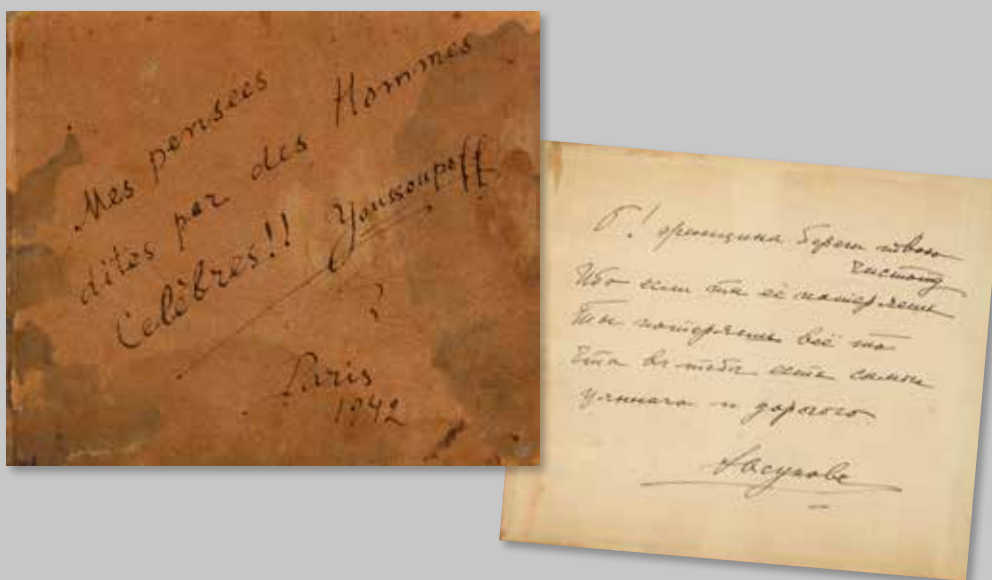 Mes pensees
dites par des Hommes
Celèbres!! Youssoupoff
?
Paris
1942
! женщина береги твою
чистоту
Ибо если ты её потеряешь
Ты потеряешь всё то
Что въ тебѣ есть самое
ценнаго и дорогого